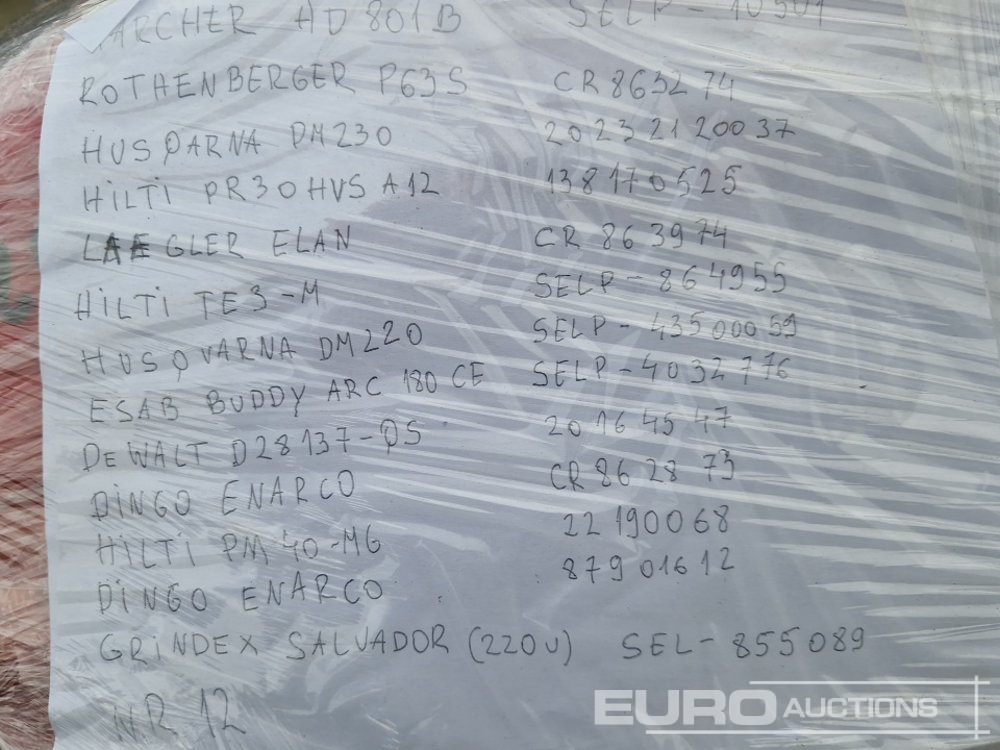 HD 801B SELP-
ROTHENBERGER P63S CR863274
HUSQARNA DM230 20232120037
HILTI PR30HVS A12 138170525
LAEGLER ELAN CR 863974
HILTI TE3-M SELP-864955
HUSQVARNA DM220 SELP-43500059
ESAB BUDDY ARC 180 CE SELP-4032776
DEWALT D28137-QS 20164547
DINGO ENARCO CR862873
HILTI PM 40-MG 22190068
DINGO ENARCO 87901612
GRINDEX SALVADOR (220V) SEL-855089
NR 12
EURO AUCTIONS